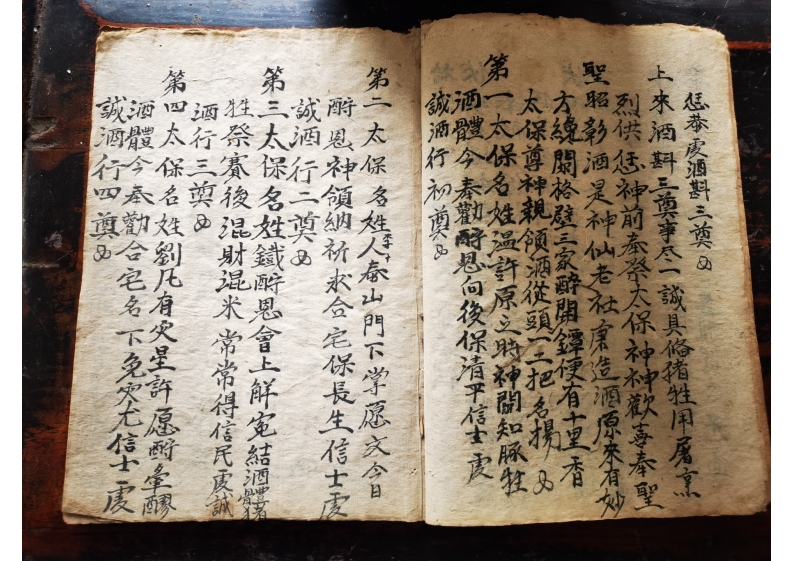 恁恭虔酒斟三奠
上來酒斟三奠事尽一誠具俻猪牲用屠烹
烈供恁神前奉祭太保神神歡喜奉聖
聖昭彰酒是神仙老社康造酒原來有妙
方纔開格壁三家醉開鐔便有十里香
太保尊神親領酒從頭一二把名揚
第一太保名姓温許原之時神聞知豚牲
酒醴今奉勸酧恩向後保清平信士虔
誠酒行初奠
第二太保名姓人泰山門下掌愿文今日
酧恩神領納祈求合宅保長生信士虔
誠酒行二奠
第三太保名姓鐵酧恩會上觧寃結酒醴猪
牲祭賽後混財混米常常得信民虔誠
酒行三奠
第四太保名姓劉凡有灾星許愿酧
酒醴今奉勸合宅名下免灾尤信士虔
誠酒行四奠